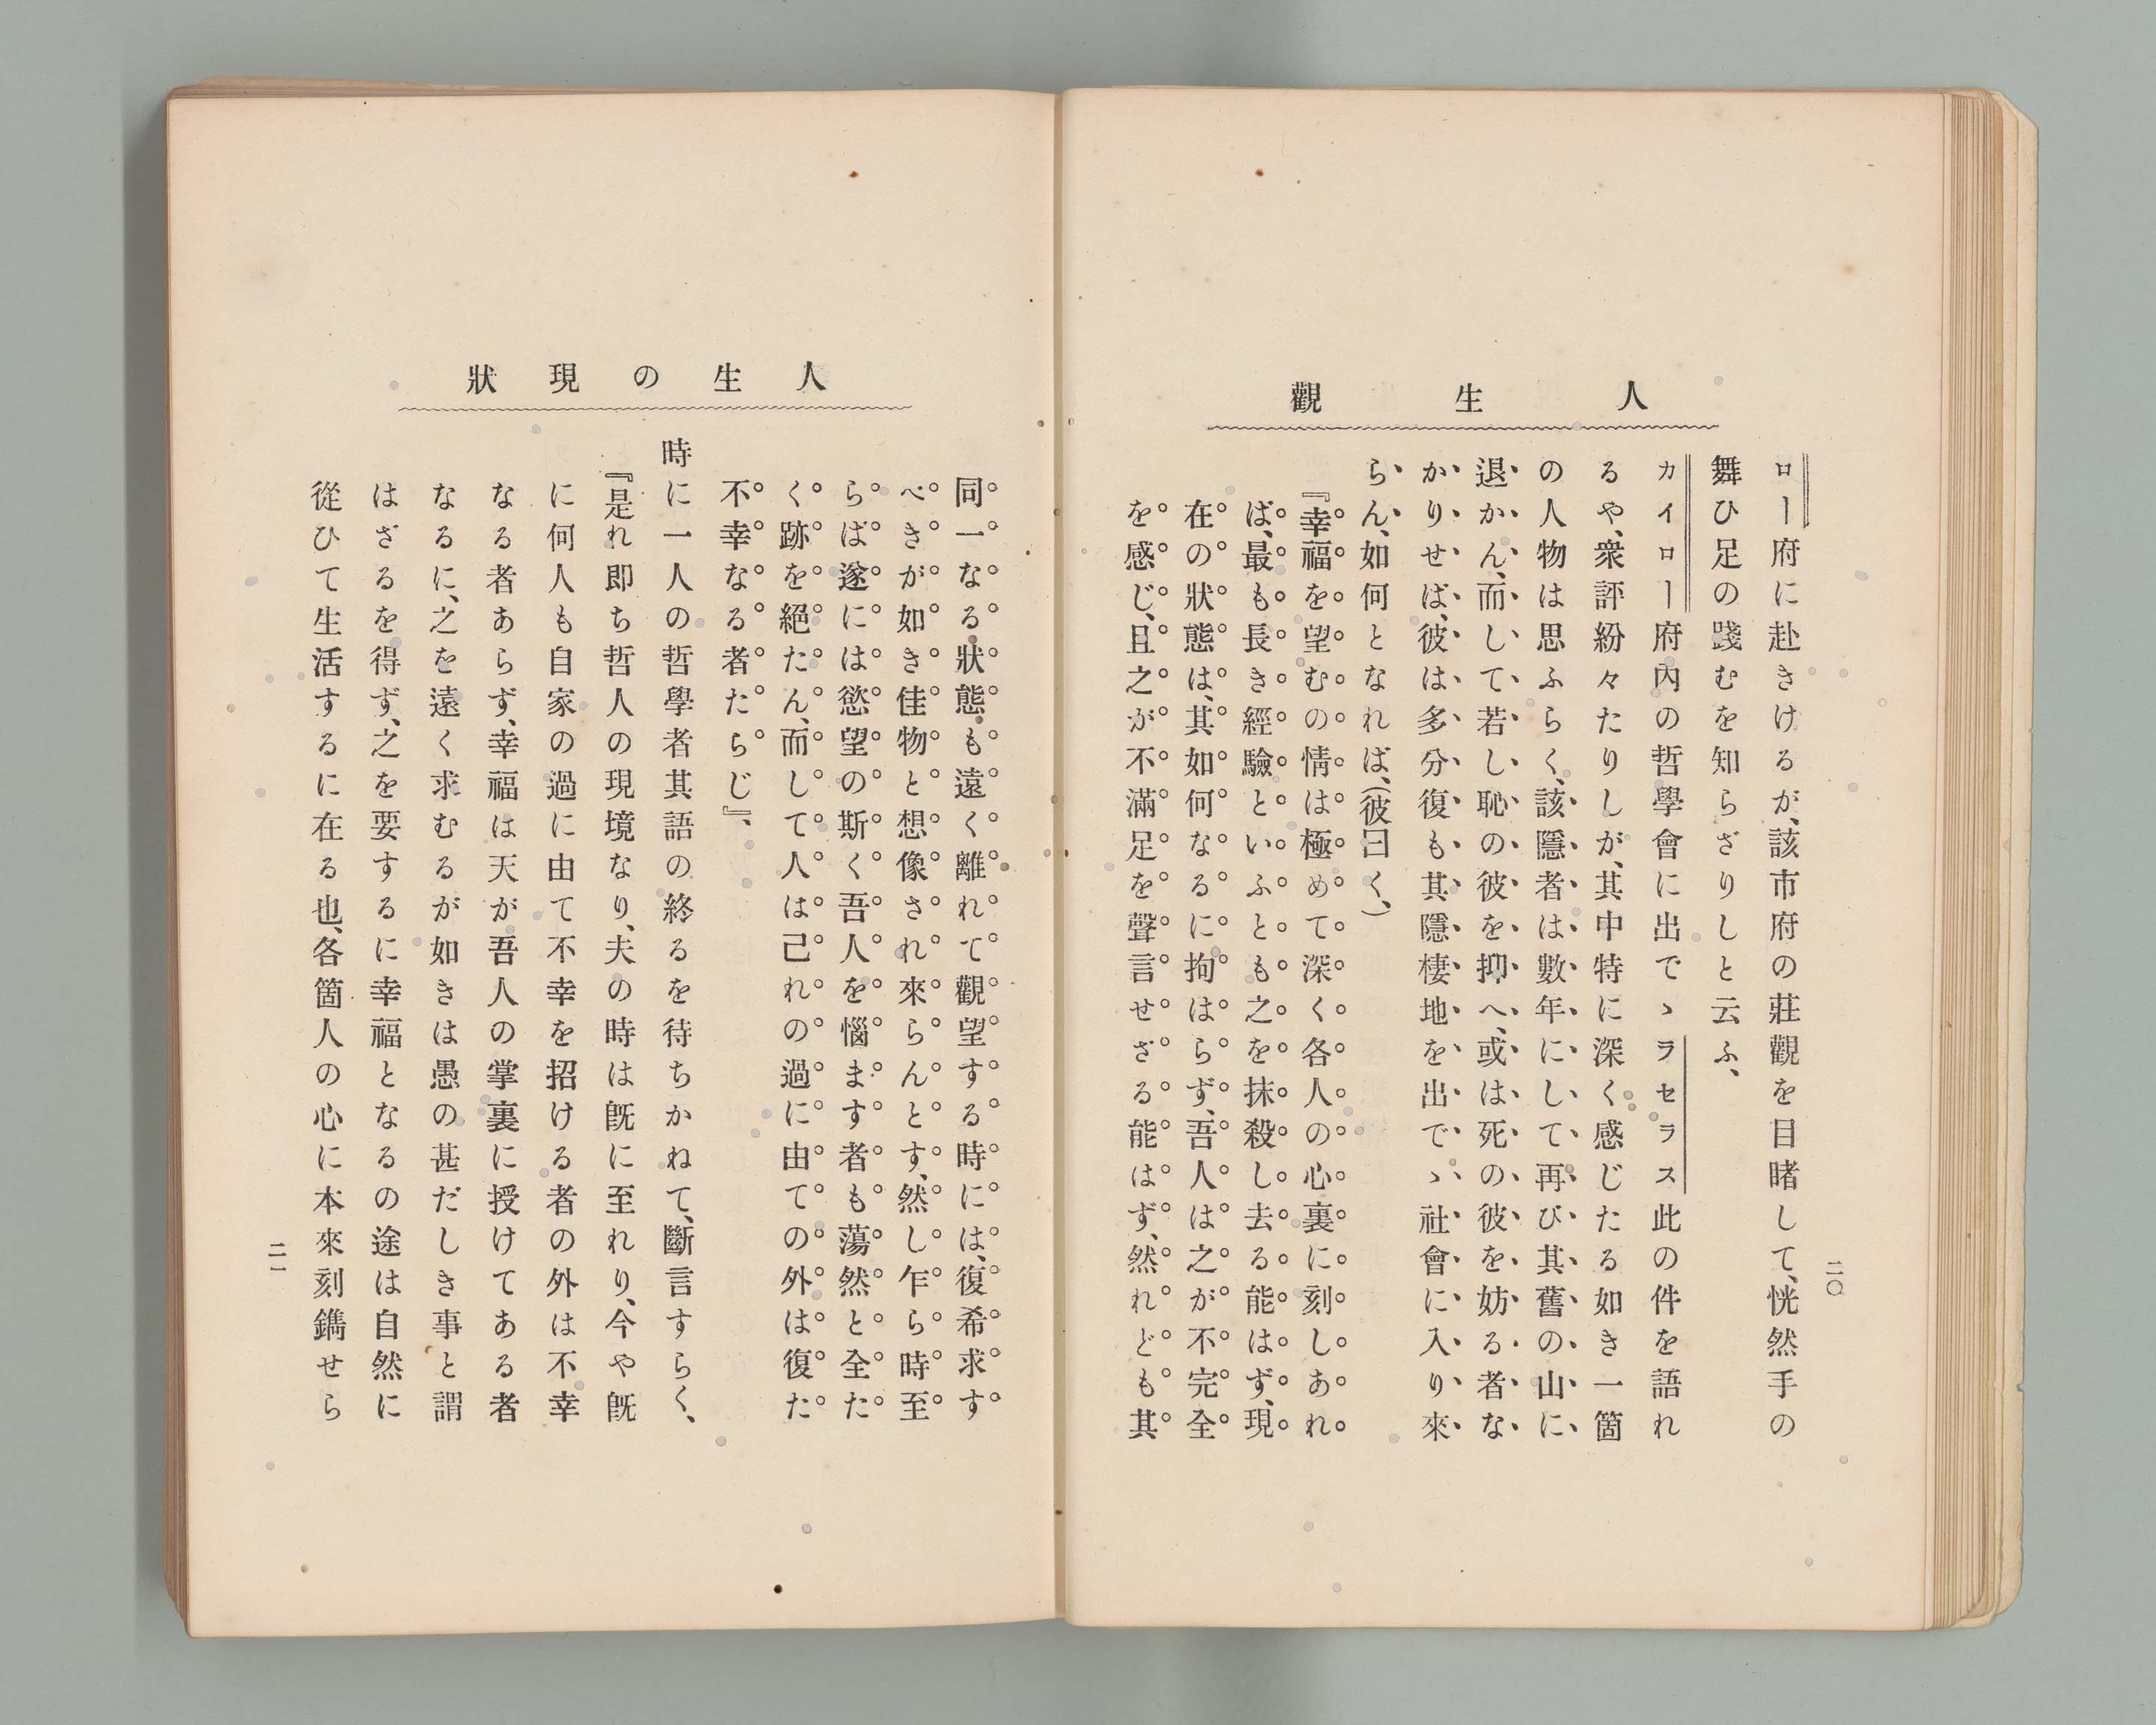 人生觀
ロー府に赴きけるが、該市府の莊觀を目睹して、恍然手の
舞ひ足の踐むを知らざりしと云ふ、
カイロー府內の哲學會に出でゝラセラス此の件を語れ
るや、衆評紛々たりしが、其中特に深く感じたる如き一箇
の人物は思ふらく、該隱者は數年にして再び其舊の山に
退かん、而して若し恥の彼を抑へ、或は死の彼を妨る者な
かりせば、彼は多分復も其隱棲地を出でゝ社會に入り來
らん、如何となれば、(彼曰く、)
『幸福を望むの情は極めて深く各人の心裏に刻しあれ
ば、最も長き經驗といふとも之を抹殺し去る能はず、現
在の狀態は、其如何なるに拘はらず、吾人は之が不完全
を感じ、且之が不滿足を聲言せざる能はず、然れども其
二〇
人生の現狀
同一なる狀態も遠く離れて觀望する時には、復希求す
べきが如き佳物と想像され來らんとす、然し乍ら時至
らば遂には慾望の斯く吾人を惱ます者も蕩然と全た
く跡を絕たん、而して人は己れの過に由ての外は復た
不幸なる者たらじ』、
時に一人の哲學者其語の終るを待ちかねて、斷言すらく、
『是れ即ち哲人の現境なり、夫の時は旣に至れり、今や旣
に何人も自家の過に由て不幸を招ける者の外は不幸
なる者あらず、幸福は天が吾人の掌裏に授けてある者
なるに、之を遠く求むるが如きは愚の甚だしき事と謂
はざるを得ず、之を要するに幸福となるの途は自然に
從ひて生活するに在る也、各箇人の心に本來刻鐫せら
二一